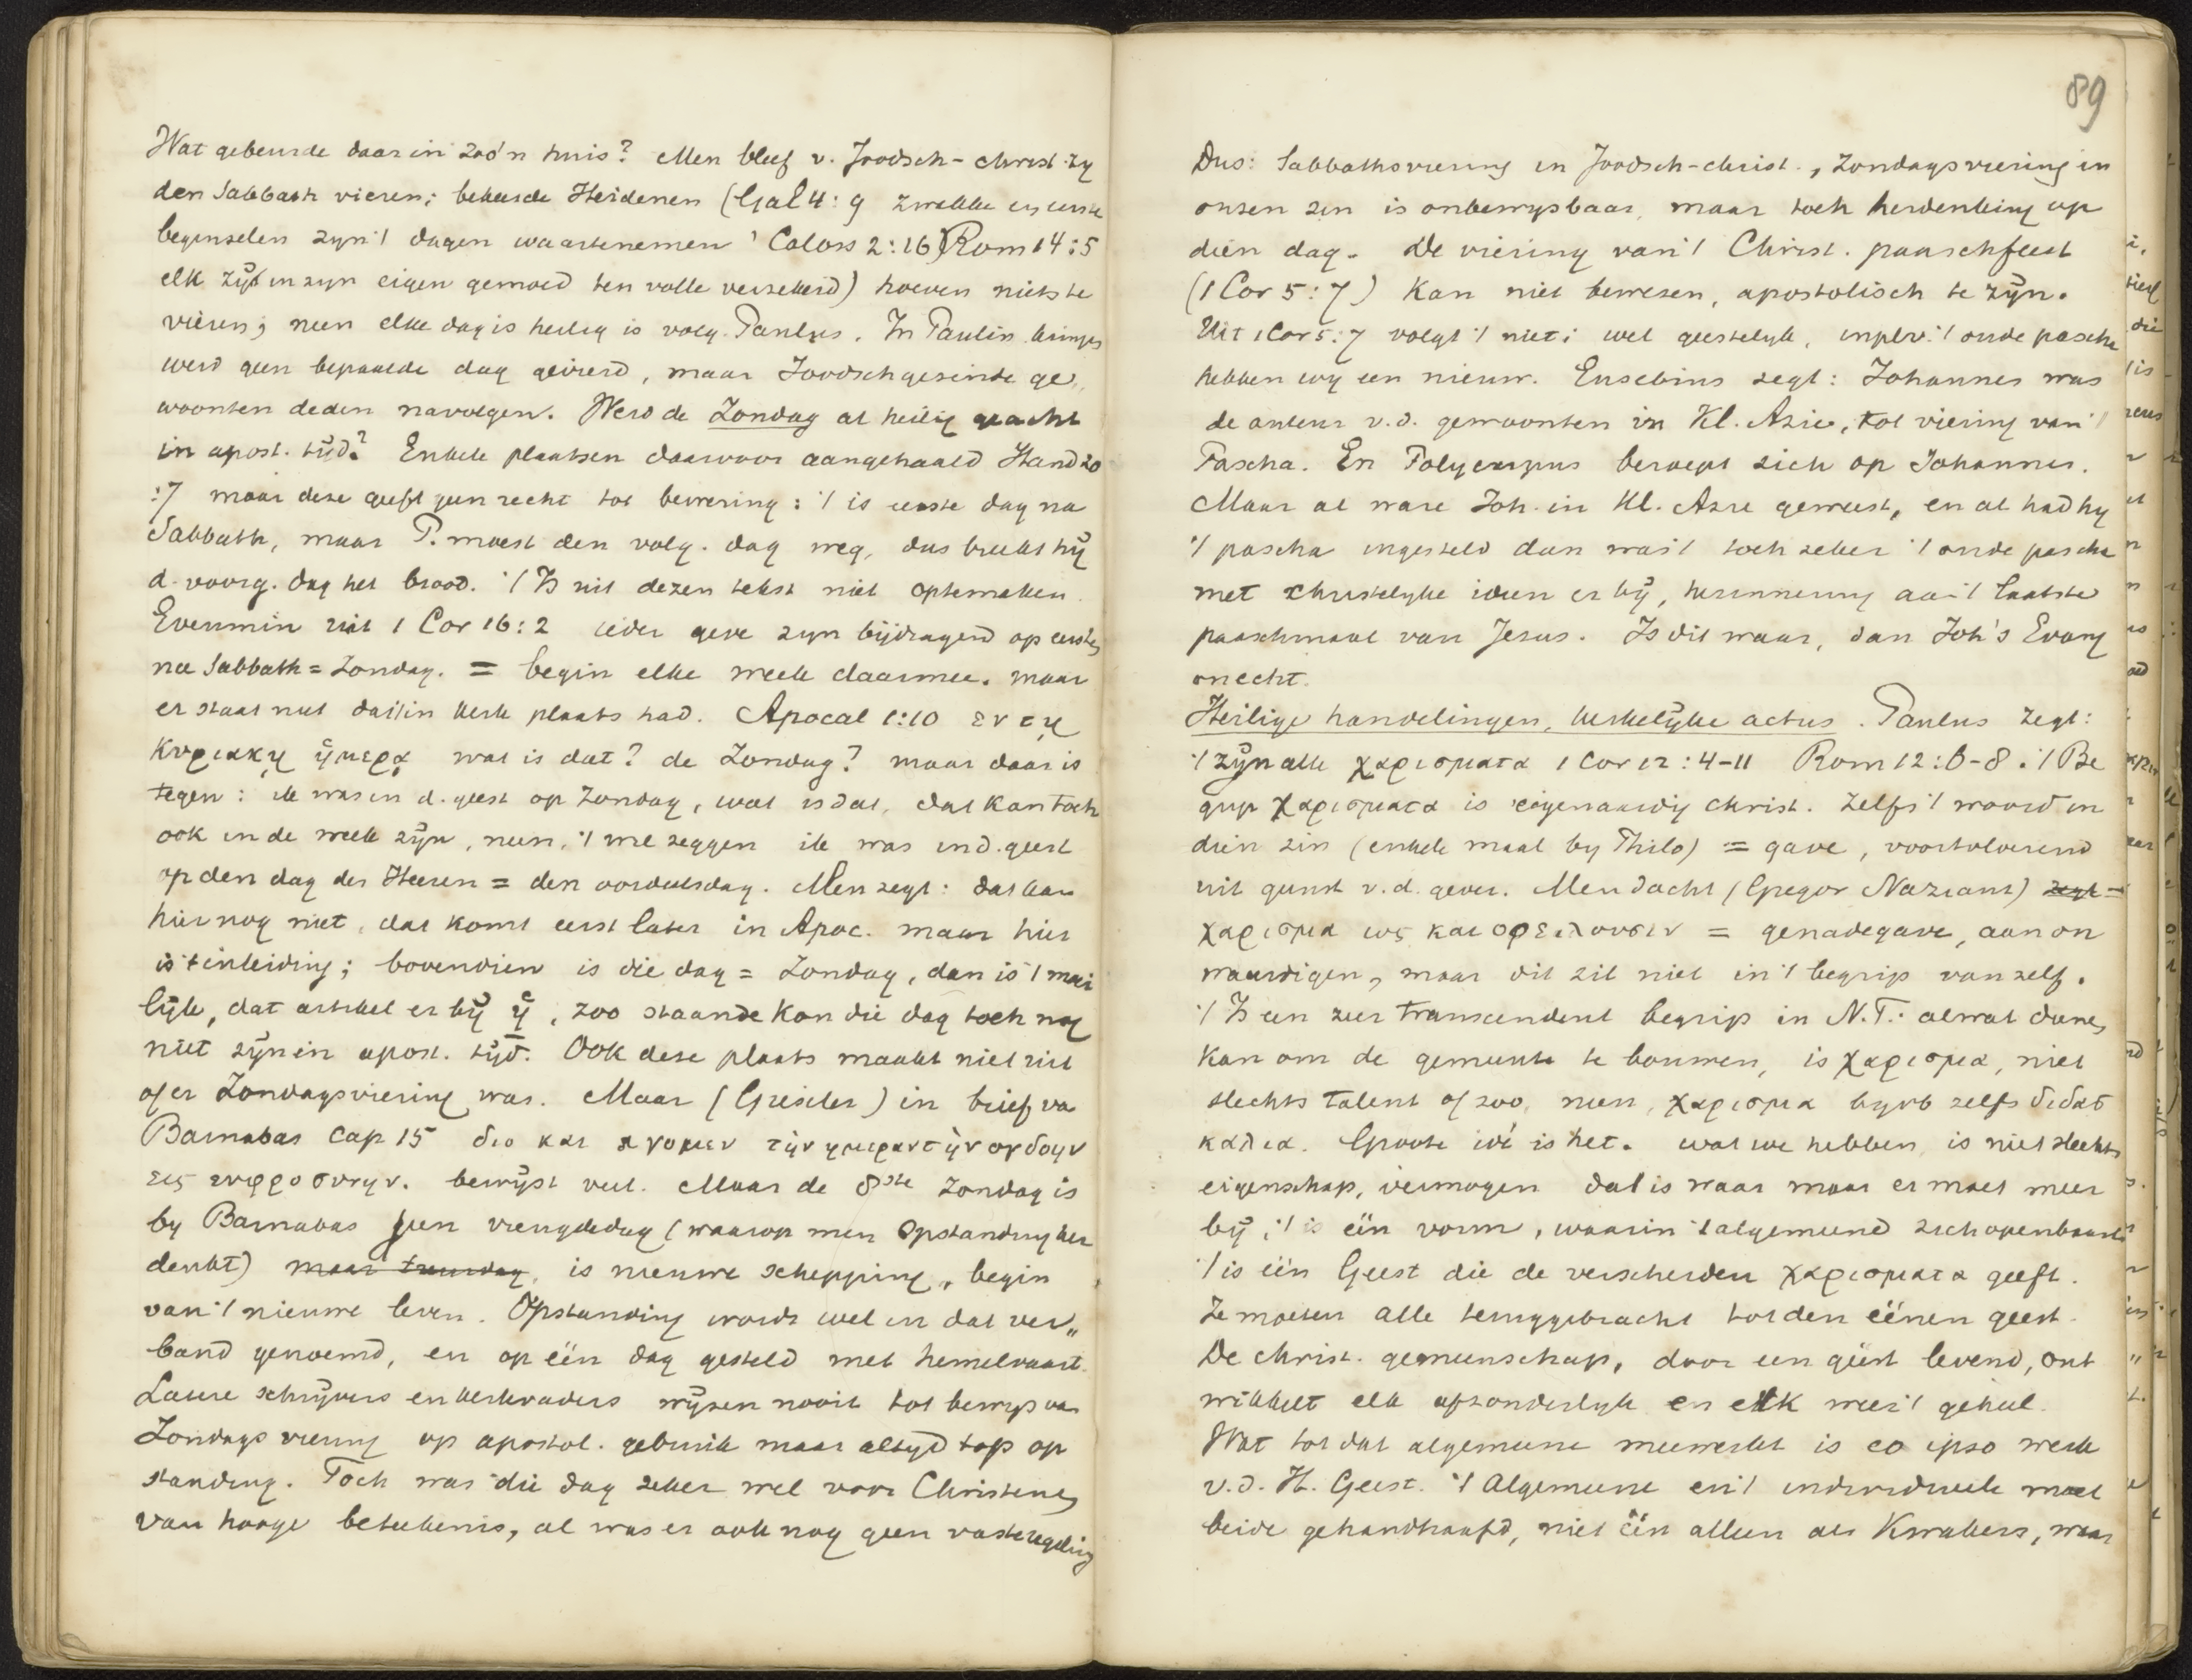 Wat gebeurde daar in zoo'n huis? Men bleef v. Joodsch-christ. zy
den Sabbath vieren; bekeerde Heidenen (Gal 4:9 zwakke en eerste
beginselen zyn 't dagen waartenemen' Coloss 2:16) Rom 14:5
elk zy in zyn eigen gemoed ten volle verzekerd) hoeven niets te
vieren; neen elke dag is heilig is volg. Paulus. In Paulin. kringen
werd geen bepaalde dag gevierd, maar Joodschgezinde ge„
woonten deden navolgen. Werd de Zondag als heilig geacht
in apost. tijd? Enkele plaatsen daarvoor aangehaald Hand 20
:7 maar deze geeft geen recht tot bewering: 't is eerste dag na
Sabbath, maar P. moest den volg. dag weg, dus breekt hij
d. voorg. dag het brood. 't Is uit dezen tekst niet optemaken.
Evenmin uit 1 Cor 16:2 ieder geve zyn bijdragend op eersten
na Sabbath = Zondag. = begin elke week daarmee. maar
er staat niet dat 't in kerk plaats had. Apocal 1:10 εν τῃ
κυριακῃ ἡμερᾳ wat is dat? de Zondag? maar daar is
tegen: ik was in d. geest op Zondag, wat is dat, dat kan toch
ook in de week zijn, neen, 't wil zeggen ik was in d. geest
op den dag des Heeren = den oordeelsdag. Men zegt: dat kan
hier nog niet, dat komt eerst later in Apoc. maar hier
is 't inleiding; bovendien is die dag = Zondag, dan is 't moei
lijk, dat artikel er bij ἡ, zoo staande kon die dag toch nog
niet zijn in apost. tijd. Ook deze plaats maakt niet uit
of er Zondagsviering was. Maar (Gieseler) in brief va
Barnabas cap 15 διο και αγομεν την ημεραν την ογδοην
εις ευφροσυνην. bewijst veel. Maar de 8ste Zondag is
by Barnabas geen vreugdedag (waarop men Opstanding her
denkt) maar treurdag, is nieuwe schepping, begin
van 't nieuwe leven. Opstanding wordt wel in dat ver„
band genoemd, en op één dag gesteld met hemelvaart.
Latere schrijvers en kerkvaders wijzen nooit tot bewys van
Zondagsviering op apostol. gebruik maar altyd top op
standing. Toch was die dag zeker wel voor Christenen
van hooge beteekenis, al was er ook nog geen vaste regeling
89
Dus: Sabbathsviering in Joodsch-christ., Zondagsviering in
onzen zin is onbewysbaar, maar toch herdenking op
dien dag. De viering van 't Christ. paaschfeest
(1 Cor 5:7) kan niet bewezen, apostolisch te zijn.
Uit 1 Cor 5:7 volgt 't niet; wel geestelyk, inplv. 't oude pascha
hebben wy een nieuw. Eusebius zegt: Johannes was
de auteur v.d. gewoonten in Kl. Azie, tot viering van 't
Pascha. En Polycarpus beroept zich op Johannes.
Maar al ware Joh. in Kl. Azie geweest, en al had hy
't pascha ingesteld dan was 't toch zeker 't oude pascha
met christelyke ideen er bij, herinnering aan 't laatste
paaschmaal van Jezus. Is dit waar, dan Joh's Evang
onecht.
Heilige handelingen, kerkelijke actus. Paulus zegt:
't zijn alle χαρισματα 1 Cor 12:4-11 Rom 12:6-8. 't Be
grip χαρισματα is eigenaardig christ. Zelfs 't woord in
dien zin (enkele maal by Philo) = gave, voortvloeiend
uit gunst v.d. gever. Men dacht (Gregor Nazianz) zegt =
χαρισμα ως και οφειλουσιν = genadegave, aan on
waardigen, maar dit zit niet in 't begrip vanzelf.
't Is een zeer transcendent begrip in N.T.: alwat dienen
kan om de gemeente te bouwen, is χαρισμα, niet
slechts talent of zoo, neen, χαρισμα byvb zelfs διδασ
καλια. Groote idé is het. wat we hebben is niet slechts
eigenschap, vermogen dat is waar maar er moet meer
bij, 't is één vorm, waarin 't algemeend zich openbaart
't is één Geest die de verscheiden χαρισματα geeft.
Ze moeten alle teruggebracht tot den éénen geest.
De christ. gemeenschap, door een geest levend, ont
wikkelt elk afzonderlyk en elk weer 't geheel.
Wat tot dat algemeene meewerkt is eo ipso werk
v.d. H. Geest. 't Algemeene en 't individueele moet
beide gehandhaafd, niet één alleen als Kwakers, waar